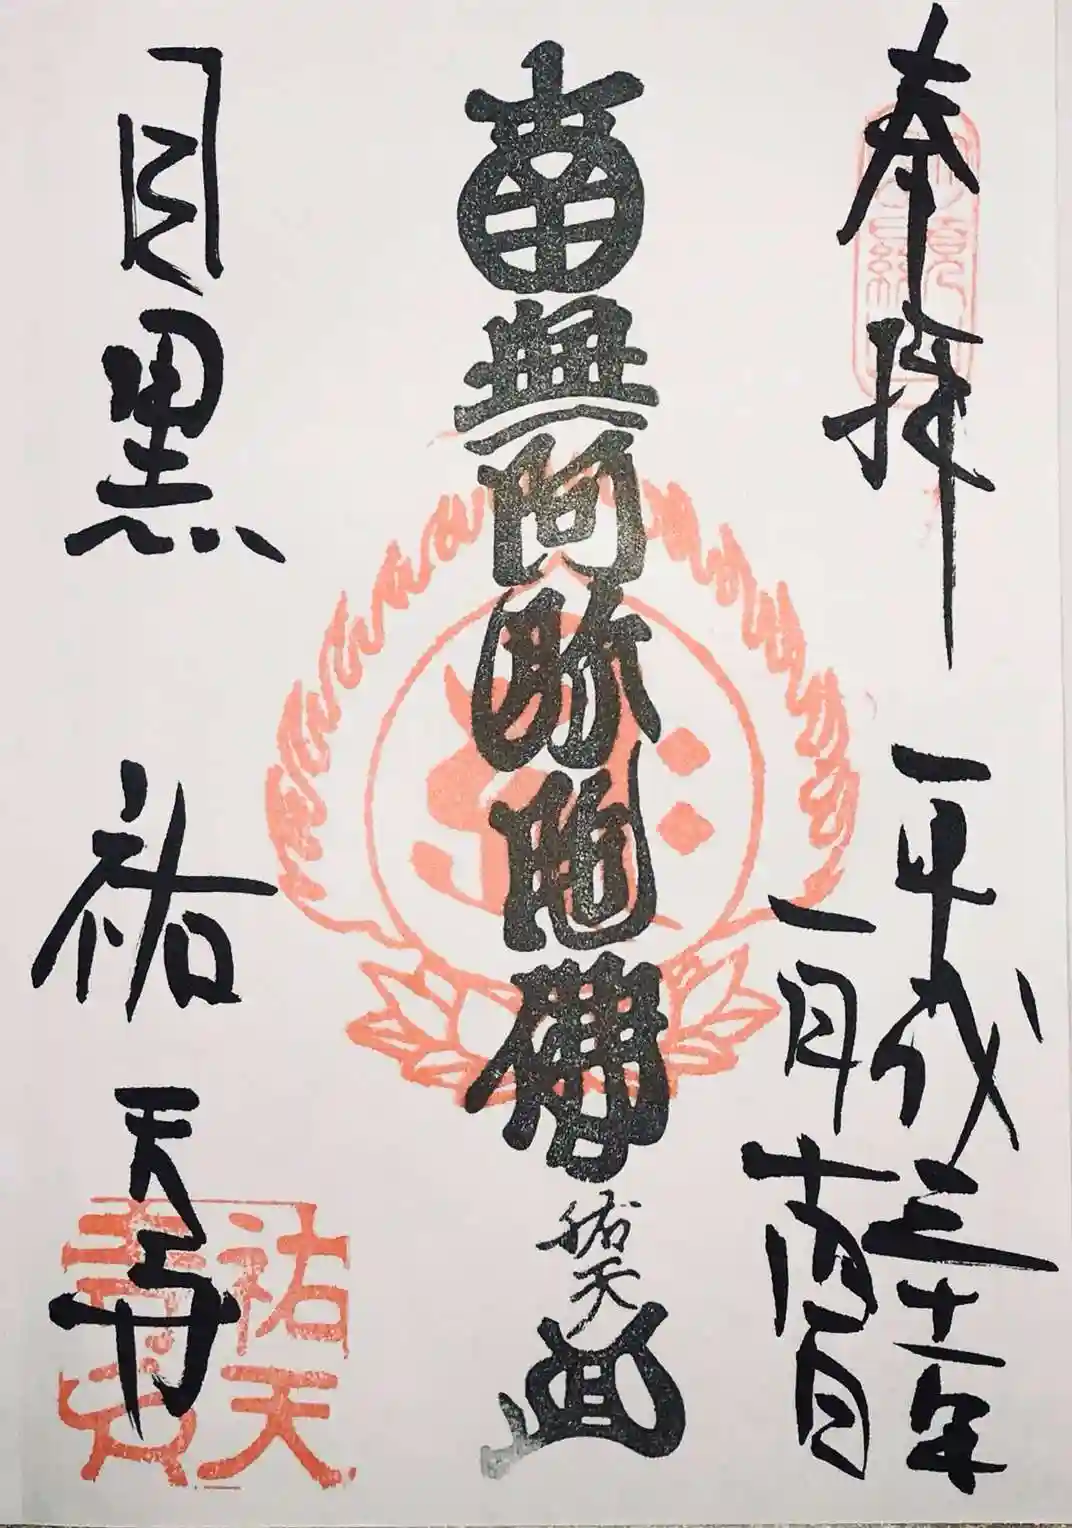 奉拝
平成三十一年
一月十四日
南無阿弥陀佛
祐天
目黒
祐天寺
祐天